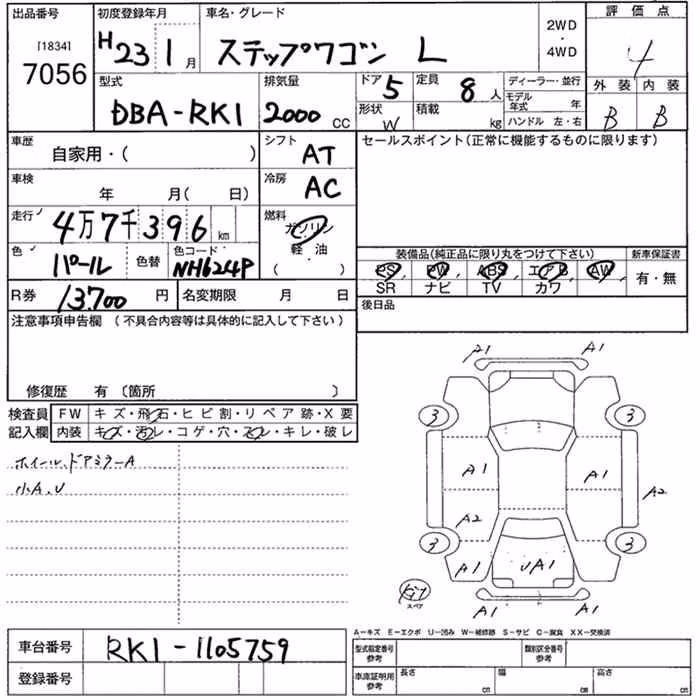 出品番号
[1834]
7056
初度登録年月
H23 1月
車名・グレード
ステップワゴン L
2WD
・
4WD
評価点
4
外装 内装
B B
型式
DBA-RK1
排気量
2000 CC
ドア 5
定員 8人
形状 W
積載 kg
ディーラー・並行
モデル年式 年
ハンドル 左・右
車歴
自家用・( )
シフト
AT
セールスポイント(正常に機能するものに限ります)
車検
年 月( 日)
冷房
AC
走行
4万7千396km
燃料
ガソリン
軽・油
( )
色
パール
色替
色コード
NH624P
装備品(純正品に限り丸をつけて下さい)
PS PW ABS エアB AW
SR ナビ TV カワ
新車保証書
有・無
R券
13,700 円
名変期限 月 日
後日品
注意事項申告欄 (不具合内容等は具体的に記入して下さい)
修復歴 有 〔箇所 〕
検査員
記入欄
FW キズ・飛石・ヒビ割・リペア跡・X要
内装 キズ・汚レ・コゲ・穴・スレ・キレ・破レ
ホイール、ドアミラーA
小A、U
A1 A1
3 3
A1 A1
A2
A2
3 3
A1 UA1 A1
スペア
A1 A1
A－キズ E－エクボ U－凹み W－補修跡 S－サビ C－腐食 XX－交換済
車台番号
RK1-1105759
登録番号
型式指定番号
参考
類別区分番号
参考
車庫証明用
参考
長さ cm
幅 cm
高さ cm